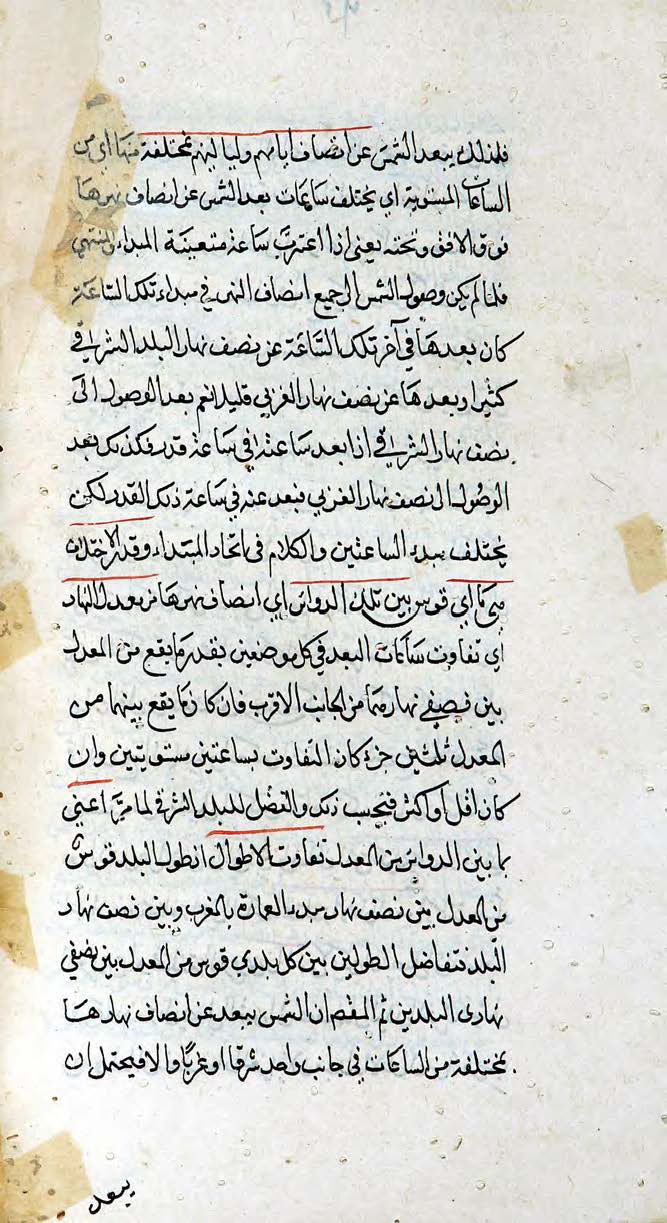 فلذلك يبعد الشمس عن انصاف ايامهم ولياليهم بمختلفة منها اي من
الساعات المستوية اي يختلف ساعات بعد الشمس عن انصاف نهرها
فوق الافق وتحته يعني اذا اعتبرت ساعة متعينة المبداء والمنتهى
فلما لم يكن وصول الشمس الى جميع انصاف النهر في مبداء تلك الساعة
كان بعدها في آخر تلك الساعة عن نصف نهار البلد الشرقي
كثيرا وبعدها عن نصف نهار الغربي قليلا نعم بعد الوصول الى
نصف نهار الشرقي اذا بعد ساعة في ساعة قدر فكذلك بعد
الوصول الى نصف نهار الغربي فبعد عنه في ساعة ذلك القدر لكن
يختلف مبدء الساعتين والكلام في اتحاد المبتداء وقدر الاختلاف
اي قوس بين تلك الدوائر اي انصاف نهرها من معدل النهار
اي تفاوت ساعات البعد في كل موضعين بقدر ما يقع من المعدل
بين نصفي نهارهما من الجانب الاقرب فان كان ما يقع بينهما من
المعدل ثلثين جزء كان التفاوت بساعتين مستويتين وان
كان اقل او اكثر فبحسب ذلك والفضل للبلد الشرقي لما مرّ اعني
ما بين الدوائر من المعدل تفاوت الاطوال اذ طول البلد قوس
من المعدل بين نصف نهار مبدء العمارة بالمغرب وبين نصف نهار
البلد فتفاضل الطولين بين كل بلدي قوس من المعدل بين نصفي
نهاري البلدين ثم المفهم ان الشمس يبعد عن انصاف نهارها
بمختلفة من الساعات في جانب واحد شرقا او غربا والا فيحتمل ان
يبعد